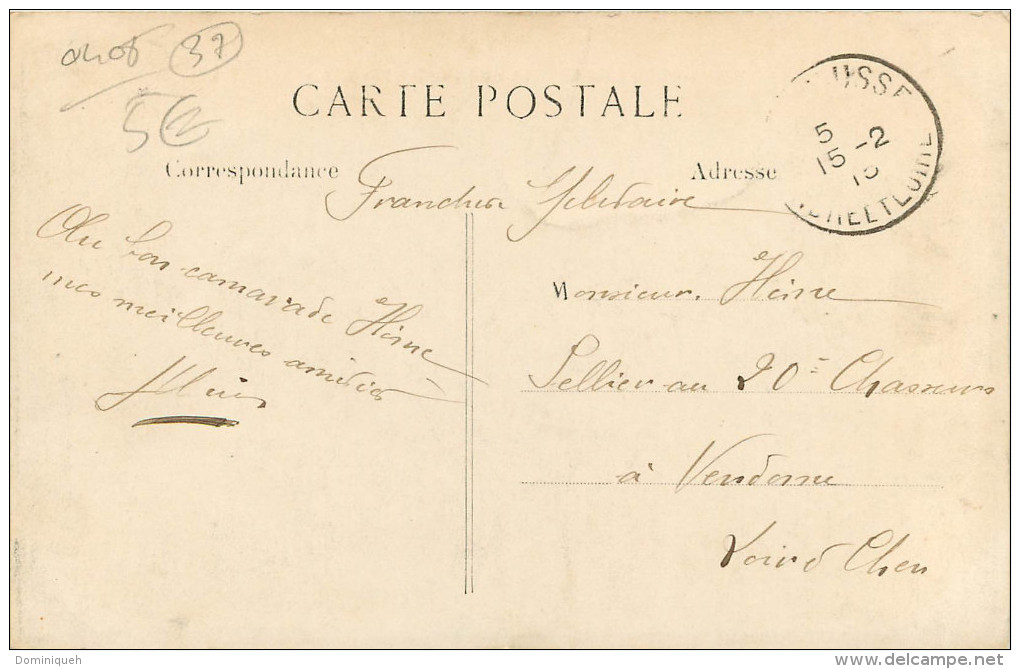 37
CARTE POSTALE
USSE
5
15-2
15
INDRE ET LOIRE
Correspondance
Adresse
Franchise Militaire
Au bon camarade Heine
mes meilleures amitiés
Monsieur Heine
Sellier au 20e Chasseurs
à Vendome
Loir & Cher
Dominiqueh
www.delcampe.net